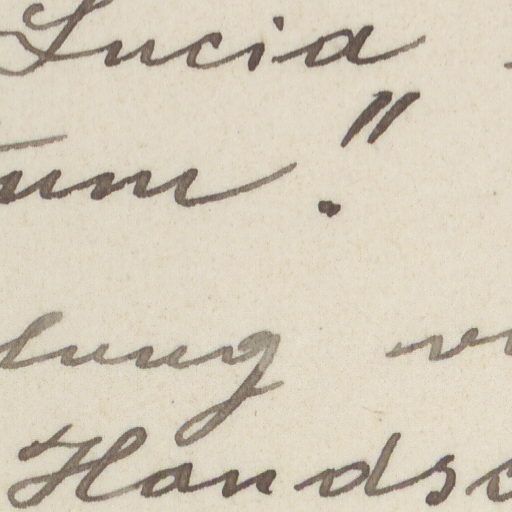 Lucia
um."
lung
Handsc